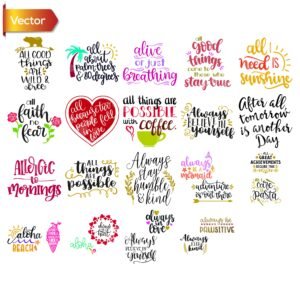 Vector
ALL GOOD
THINGS
ARE
WILD &
FREE
all
about
palm trees
& 80 degrees
alive
or just
breathing
all
good
things
come to
those who
stay true
all
need is
sunshine
all
faith
no
fear
all
because two
people fell
in love
all things are
POSSIBLE
with
coffee
Always
believe in
yourself
After all
tomorrow
is another
Day
Allergic
to
mornings
ALL
THINGS
are
possible
Always
stay
humble
& kind
always
a
mermaid
adventure
is out there
ALL
GREAT
ACHIEVEMENTS
REQUIRE TIME
pasta
aloha
BEACHES
aloha
always
in love
Always
Believe in
yourself
Always
be
kind
always be
PAWSITIVE